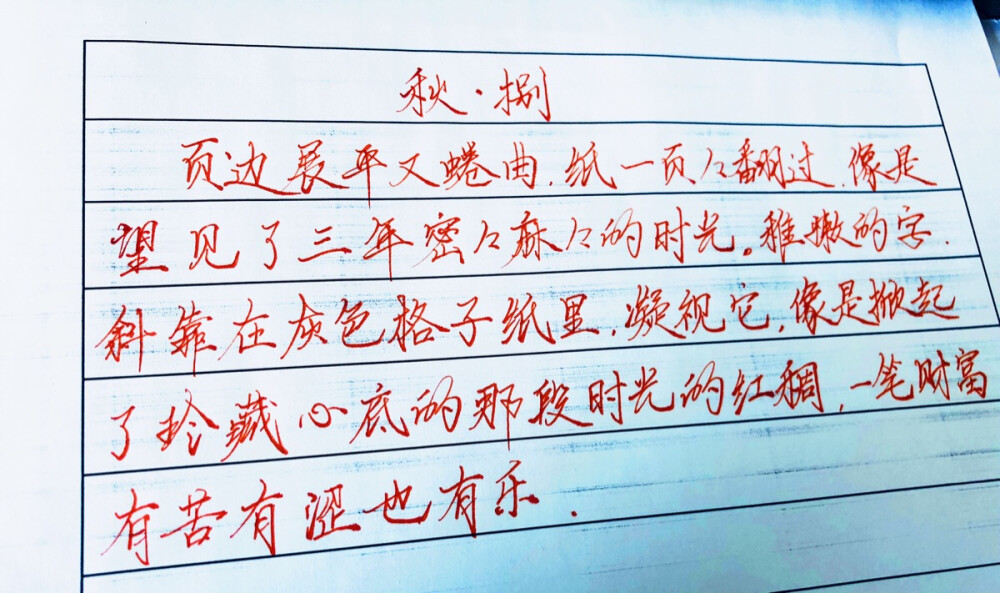 秋·捌
页边展平又蜷曲,纸一页々翻过,像是
望见了三年密々麻々的时光。稚嫩的字,
斜靠在灰色格子纸里,凝视它,像是掀起
了珍藏心底的那段时光的红稠,一笔财富
有苦有涩也有乐.